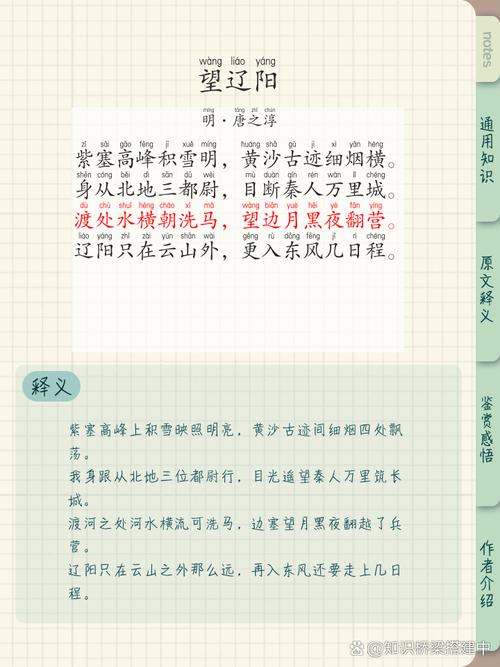 notes
wàng liáo yáng
望辽阳
míng táng zhī chún
明·唐之淳
zǐ sāi gāo fēng jī xuě míng huáng shā gǔ jì xì yān héng
紫塞高峰积雪明，黄沙古迹细烟横。
shēn cóng běi dì sān dū wèi mù duàn qín rén wàn lǐ chéng
身从北地三都尉，目断秦人万里城。
dù chù shuǐ héng cháo xǐ mǎ wàng biān yuè hēi yè fān yíng
渡处水横朝洗马，望边月黑夜翻营。
liáo yáng zhǐ zài yún shān wài gèng rù dōng fēng jǐ rì chéng
辽阳只在云山外，更入东风几日程。
释义
紫塞高峰上积雪映照明亮，黄沙古迹间细烟四处飘
荡。
我身跟从北地三位都尉行，目光遥望秦人万里筑长
城。
渡河之处河水横流可洗马，边塞望月黑夜翻越了兵
营。
辽阳只在云山之外那么远，再入东风还要走上几日
程。
通用知识
原文释义
鉴赏感悟
作者介绍
知识桥梁搭建中